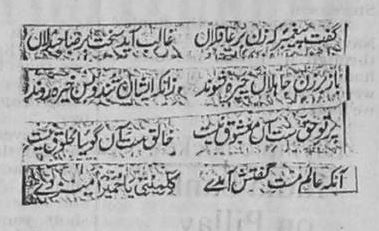 گفت پیغمبر که زن بر عاقلان غالب آید سخت بر صاحبدلان
باز بر زن جاهلان چیره شوند زانکه ایشان تند و بس خیره روند
پرتو حق ست آن معشوق نیست خالق ست آن گویا مخلوق نیست
آنکه عالم مست گفتش آمدے کلمینی یا حمیرا میزدے